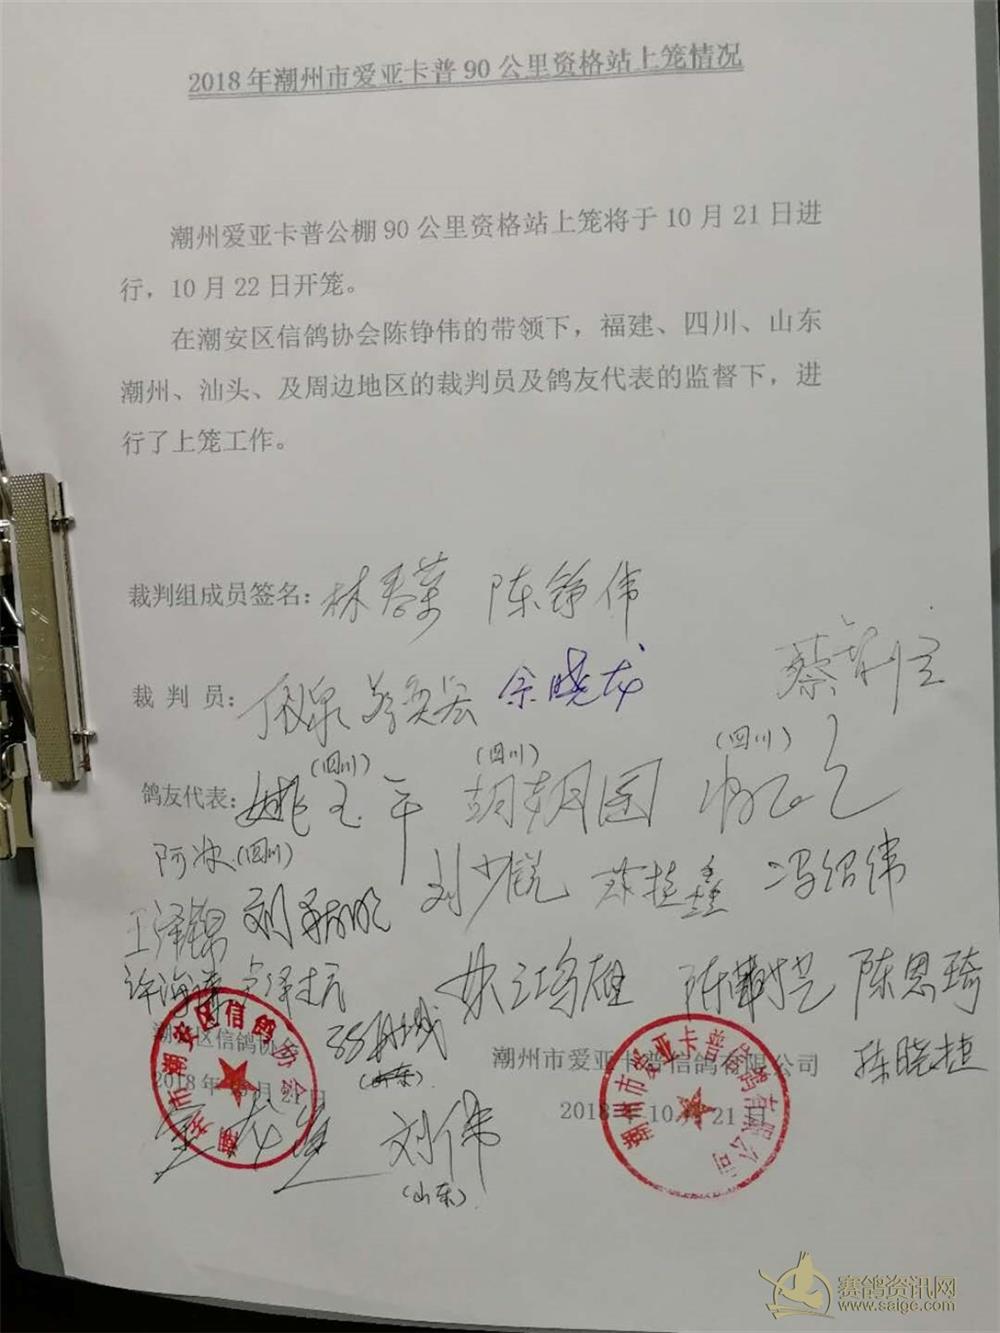 2018年潮州市爱亚卡普90公里资格站上笼情况
潮州爱亚卡普公棚90公里资格站上笼将于10月21日进
行，10月22日开笼。
在潮安区信鸽协会陈铮伟的带领下，福建、四川、山东
潮州、汕头、及周边地区的裁判员及鸽友代表的监督下，进
行了上笼工作。
裁判组成员签名：林春荣 陈铮伟
裁判员： 余晓龙
(四川) (四川) (四川)
鸽友代表：姚玉平 胡朝国
阿冰(四川) 刘少锐 冯绍伟
王泽锦 刘
许海涛 陈恩琦
潮安区信鸽协会
潮州市爱亚卡普信鸽有限公司
陈晓捷
(山东)
2018年10月21日
2018年10月21日
刘伟
(山东)
潮州市潮安区信鸽协会
潮州市爱亚卡普信鸽有限公司
赛鸽资讯网
www.saigc.com